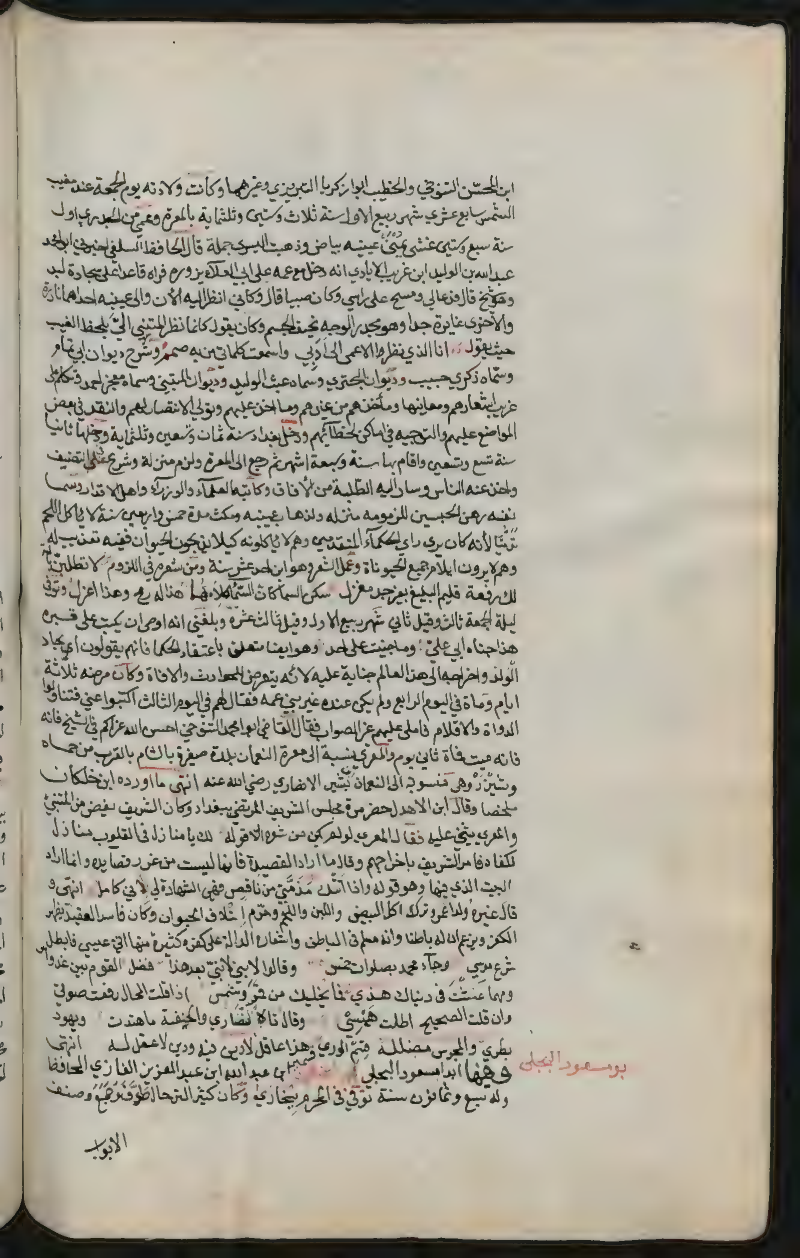 ابن المحسن التنوخي والخطيب ابوا زكريا التبريزي وغيرهما وكانت ولادته يوم الجمعة عند مغيب
الشمس سابع عشري شهر ربيع الاول سنة ثلاث وستين وثلثماية بالمعرة وعمي من الجدري اول
سنة سبع وستين غشي يمنى عينيه بياض وذهبت اليسرى جملة قال الحافظ السلفي اخبرني ابو محمد
عبدالله بن الوليد ابن غريب الايادي انه دخل مع عمه على ابي العلاء يزوره فراه قاعدا على سجادة لبد
وهو شيخ قال فدعا لي ومسح على راسي وكان صبيا قال وكاني انظر اليه الان والى عينيه احداهما نادرة
والاخرى غايرة جدا وهو مجدر الوجه نحيف الجسم وكان يقول كانما نظر المتنبي الي بلحظ الغيب
حيث يقول انا الذي نظر الاعمى الى ادبي واسمعت كلماتي من به صمم وشرح ديوان ابي تمام
وسماه ذكرى حبيب وديوان البحتري وسماه عبث الوليد وديوان المتنبي وسماه معجز احمد وتكلم على
غريب اشعارهم ومعانيها وماخذهم من غيرهم وما اخذ عليهم وتولى الانتصار لهم والنقد في بعض
المواضع عليهم والتوجيه في اماكن لخطائهم ودخل بغداد سنة ثمان وتسعين وثلثماية ودخلها ثانيا
سنة تسع وتسعين واقام بها سنة وسبعة اشهر ثم رجع الى المعرة ولزم منزله وشرع في التصنيف
واخذ عنه الناس وسار اليه الطلبة من الافاق وكاتبه العلماء والوزراء واهل الاقدار وسما
نفسه رهن الحبسين للزومه منزله ولذهاب عينيه ومكث مدة خمس واربعين سنة لا ياكل اللحم
تدينا لانه كان يرى راي الحكماء المتقدمين وهم لا ياكلونه كيلا يذبحون الحيوان ففيه تعذيب له
وهم لا يرون ايلام جميع الحيوانات وعمل الشعر وهو ابن احد عشر سنة ومن شعره في اللزوم لا تطلبن بآلة
لك رفعة قلم البليغ بغير جد مغزل سكن السماكان السماء كلاهما هذا له رمح وهذا اعزل وتوفي
ليلة الجمعة ثالث وقيل ثاني شهر ربيع الاول وقيل ثالث عشره وبلغني انه اوصى ان يكتب على قبره
هذا جناه ابي علي وما جنيت على احد وهو ايضا متعلق باعتقاد الحكما فانهم يقولون ايجاد
الولد واخراجه الى هذا العالم جناية عليه لانه يتعرض للحوادث والافات وكان مرضه ثلاثة
ايام ومات في اليوم الرابع ولم يكن عنده غير بني عمه فقال لهم في اليوم الثالث اكتبوا عني فتناولوا
الدواة والاقلام فاملى عليهم غير الصواب فقال القاضي ابو محمد التنوخي احسن الله عزاكم في الشيخ فانه
فانه ميت فمات ثاني يوم والمعري نسبة الى معرة النعمان بلدة صغيرة بالشام بالقرب من حماه
وشيزر وهي منسوبة الى النعمان بن بشير الانصاري رضي الله عنه انتهى ما اورده ابن خلكان
ملخصا وقال ابن الاهدل حضر مرة مجلس الشريف المرتضي ببغداد وكان الشريف يغض من المتنبي
والمعري يثني عليه فقال المعري لو لم يكن من شعره الا قوله لك يا منازل في القلوب منازل
لكفاه فامر الشريف باخراجه وقال ما اراد القصيدة فانها ليست من غرر قصايده وانما اراد
البيت الذي فيها وهو قوله واذا اتتك مذمتي من ناقص فهي الشهادة لي لاني كامل انتهى و
قال غيره ولد اعمى وترك اكل البيض واللبن واللحم وحرم اتلاف الحيوان وكان فاسد العقيدة يظهر
الكفر ويزعم ان له باطنا وانه مسلم في الباطن واشعاره الدالة على كفره كثيرة منها اتى عيسى فابطل
شرع موسى وجاء محمد بصلوات خمس وقالوا لا نبي لاتيٍ بعد هذا فضل القوم بين غد وامس
ومهما عشت في دنياك هذي فما تخليك من قمر وشمس اذا قلت المحال رفعت صوتي
وان قلت الصحيح اطلت همسي وقال تاه النصارى والحنيفة ماهتدت ويهود
بطرى والمجوس مضلله قسم الورى هذا عاقل لا دين فيه ودين لا عقل له انتهى
وفيها ابو مسعود البجلي احمد بن محمد بن عبدالله ابن عبد العزيز الفارزي الحافظ
وله سبع وثمانون سنة توفي في المحرم ببخارى وكان كثير الترحال طوف وجمع وصنف
بو مسعود البجلي
الابواب